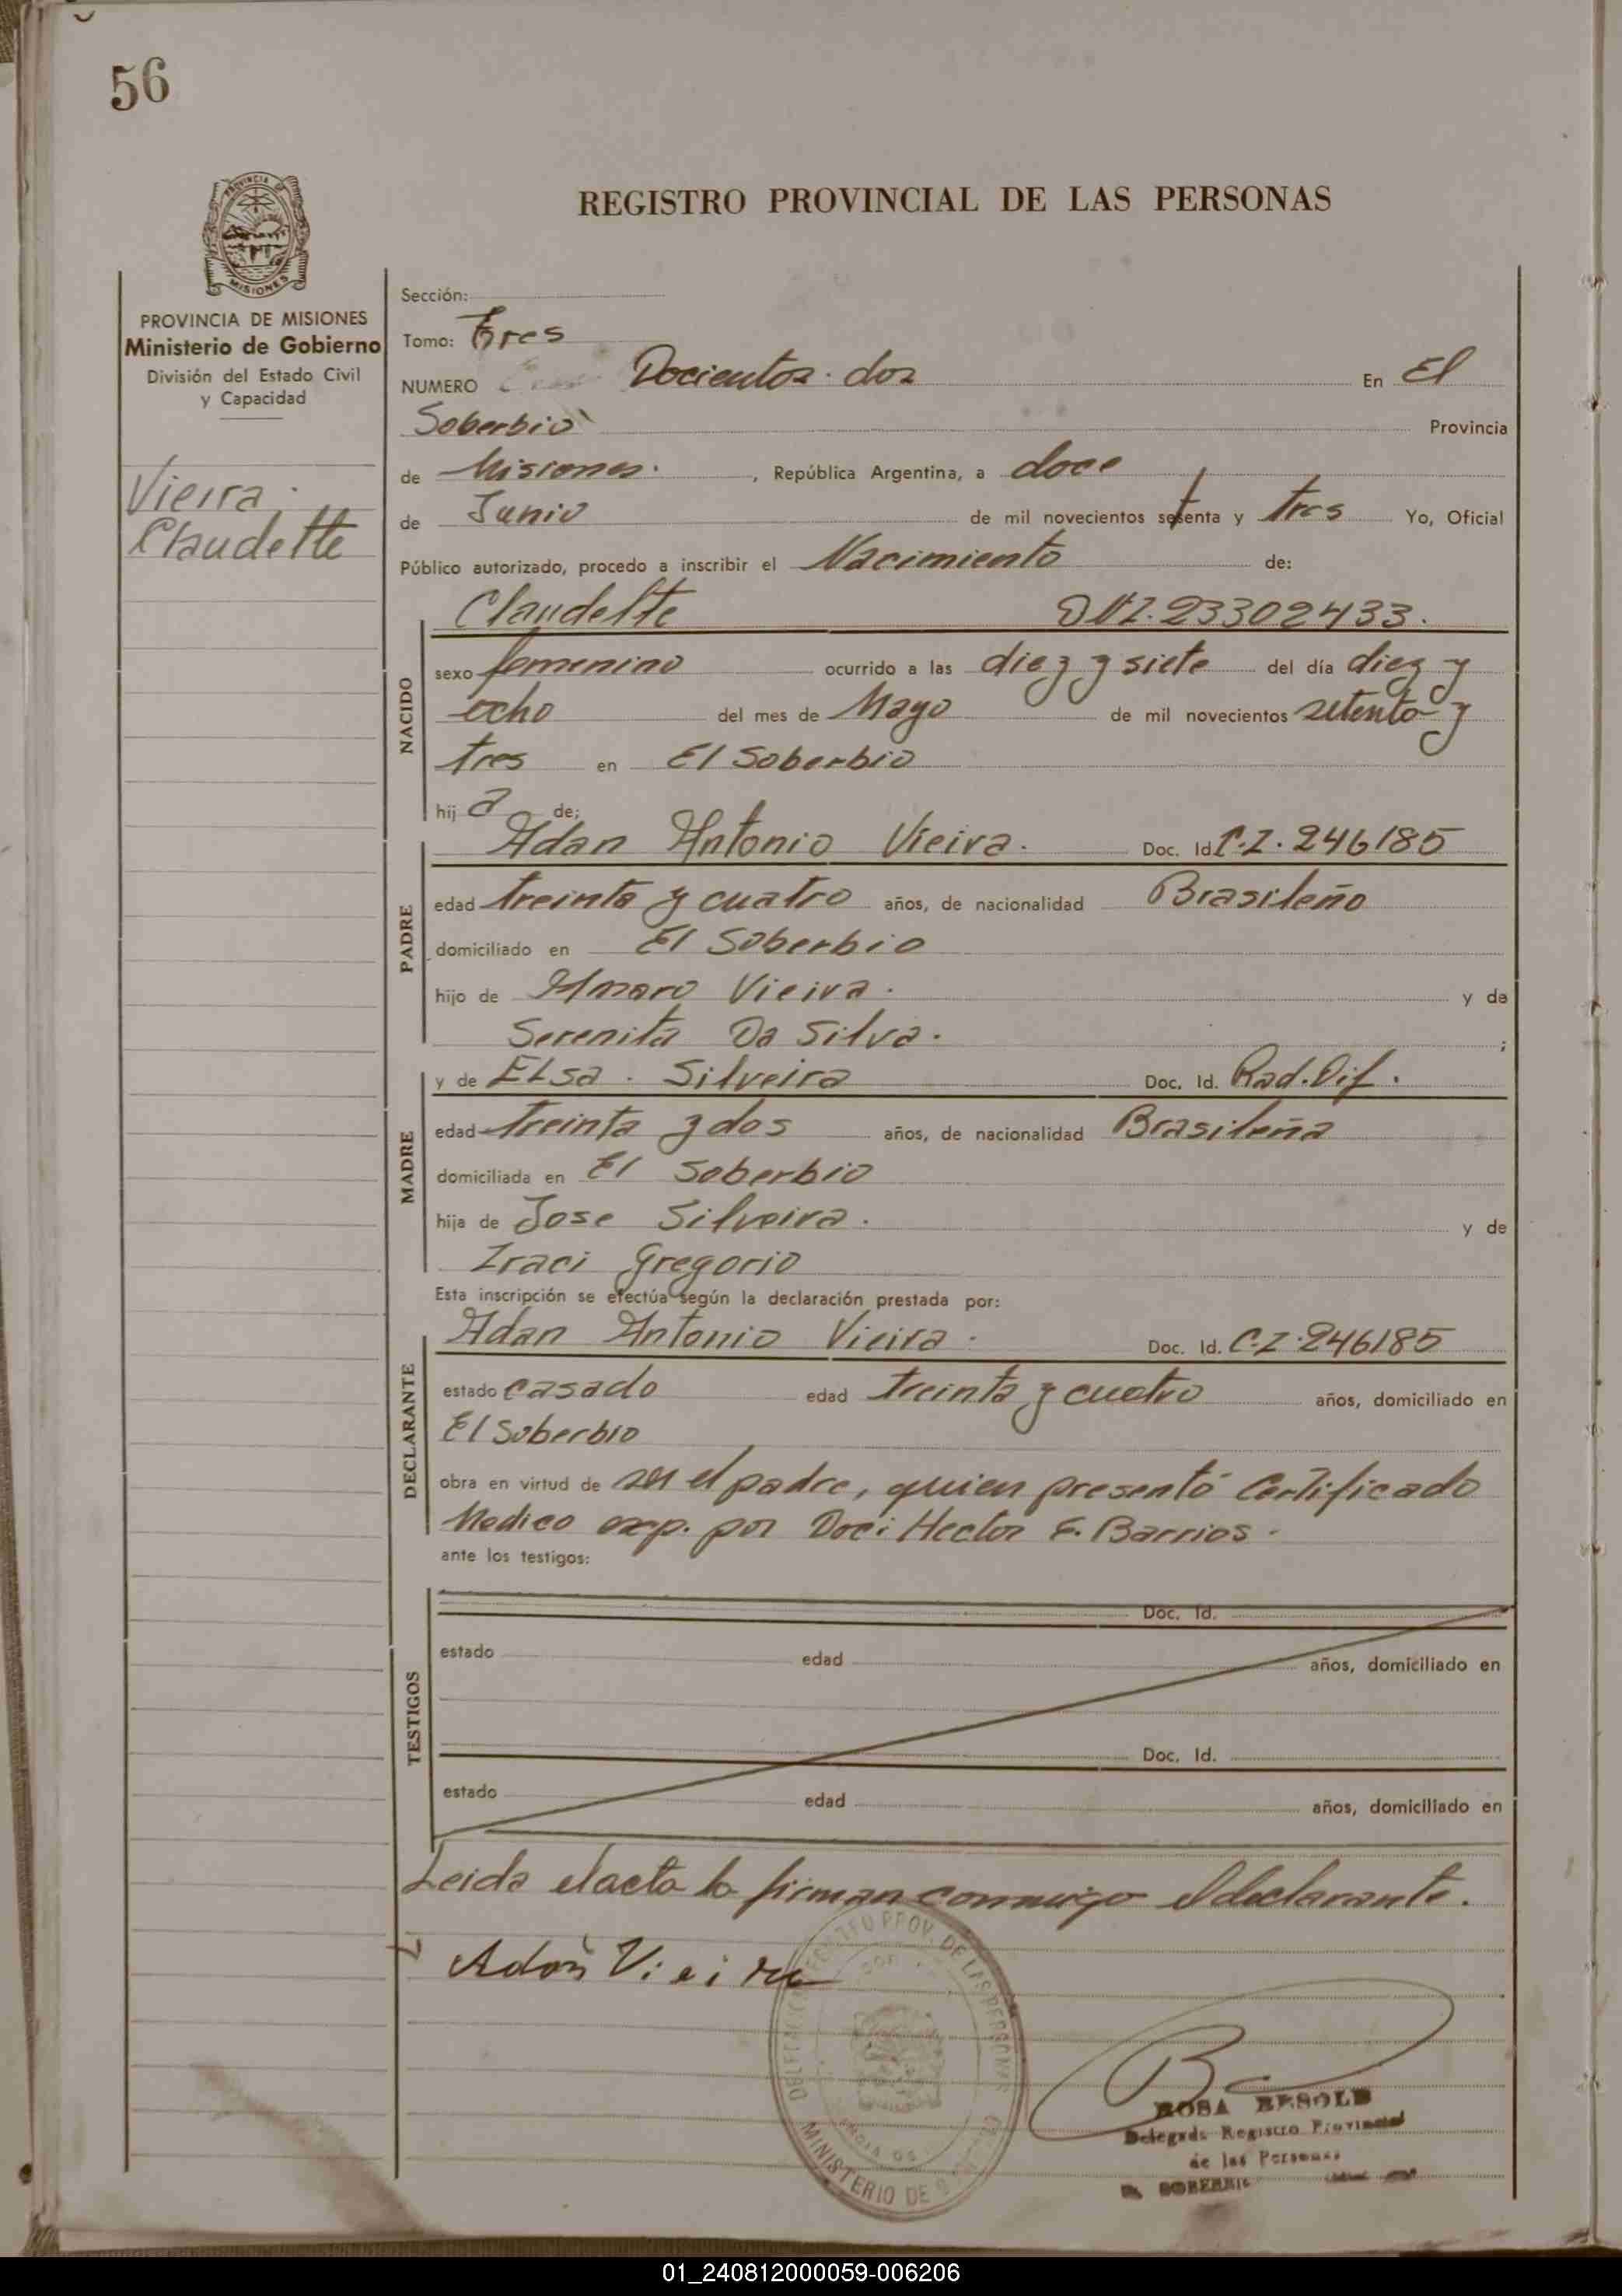 56
PROVINCIA DE
MISIONES
REGISTRO PROVINCIAL DE LAS PERSONAS
PROVINCIA DE MISIONES
Ministerio de Gobierno
División del Estado Civil
y Capacidad
Vieira
Claudette
Sección:
Tomo: Tres
NUMERO Docientos dos En El
Soberbio Provincia
de Misiones. , República Argentina, a doce
de Junio de mil novecientos setenta y tres Yo, Oficial
Público autorizado, procedo a inscribir el Nacimiento de:
Claudette DNI. 23302433.
NACIDO
sexo femenino ocurrido a las diez y siete del día diez y
ocho del mes de Mayo de mil novecientos setenta y
tres en El Soberbio
hij a de;
PADRE
Adan Antonio Vieira. Doc. Id C.I. 246185
edad treinta y cuatro años, de nacionalidad Brasileño
domiciliado en El Soberbio
hijo de Amaro Vieira. y de
Serenita Da Silva. ;
MADRE
y de Elsa Silveira Doc. Id. Rad. Dif.
edad treinta y dos años, de nacionalidad Brasileña
domiciliada en El Soberbio
hija de Jose Silveira. y de
Iraci Gregorio
Esta inscripción se efectúa según la declaración prestada por:
DECLARANTE
Adan Antonio Vieira. Doc. Id. C.I. 246185
estado casado edad treinta y cuatro años, domiciliado en
El Soberbio
obra en virtud de ser el padre, quien presentó Certificado
Medico exp. por Doc: Hector E. Barrios.
ante los testigos:
TESTIGOS
Doc. Id.
estado edad años, domiciliado en
Doc. Id.
estado edad años, domiciliado en
Leida el acta la firman conmigo el declarante.
Adan Vieira
PROV. DE LAS PERSONAS
MINISTERIO DE
ROSA BESOLD
Delegada Registro Provincial
de las Personas
EL SOBERBIO
01_240812000059-006206